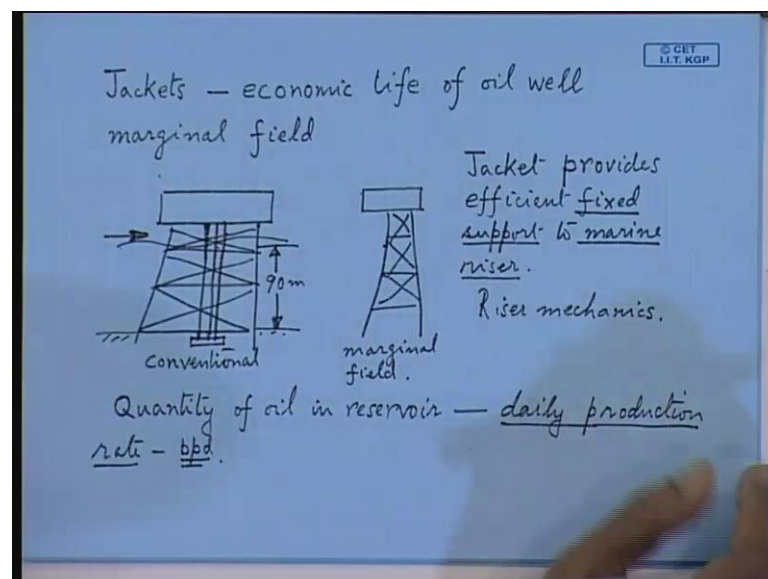 © CET
I.I.T. KGP
Jackets — economic life of oil well
marginal field
Jacket provides
efficient fixed
support to marine
riser.
Riser mechanics.
90m
conventional
marginal
field.
Quantity of oil in reservoir — daily production
rate - bpd.